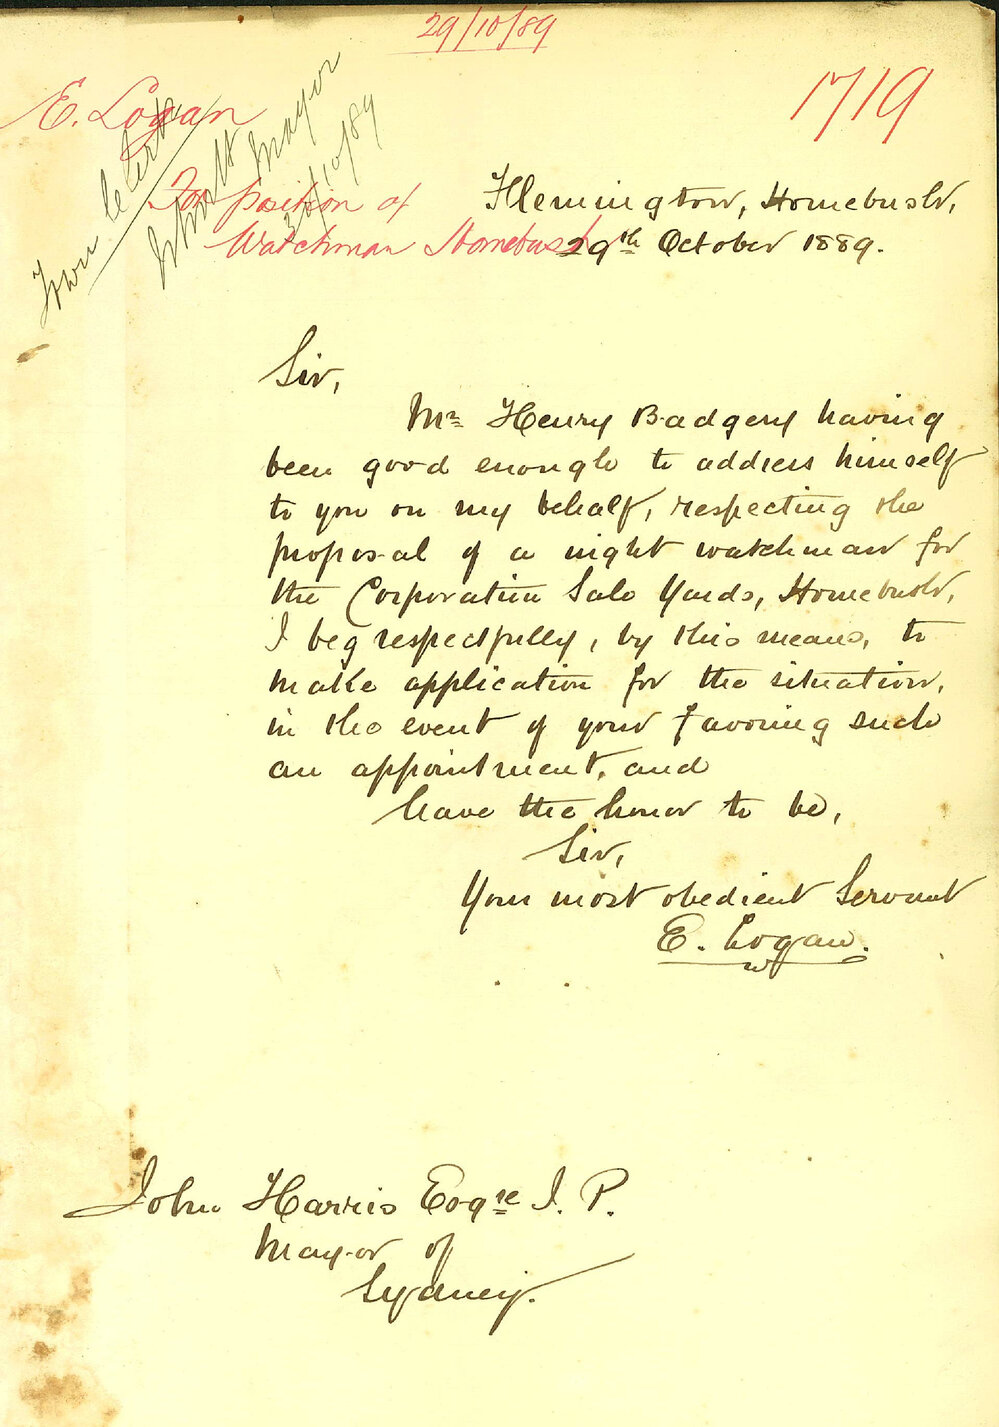 29/10/89
1719
E. Logan
For position of
Watchman Homebush
Town Clerk
Mayor
30/10/89
Flemington, Homebush,
29th October 1889.
Sir,
Mr Henry Badgery having
been good enough to address himself
to you on my behalf, respecting the
proposal of a night watchman for
the Corporation Sale Yards, Homebush,
I beg respectfully, by this means, to
make application for the situation,
in the event of your favoring such
an appointment, and
have the honor to be,
Sir,
Your most obedient Servant
E. Logan.
John Harris Esqre J. P.
Mayor of
Sydney.